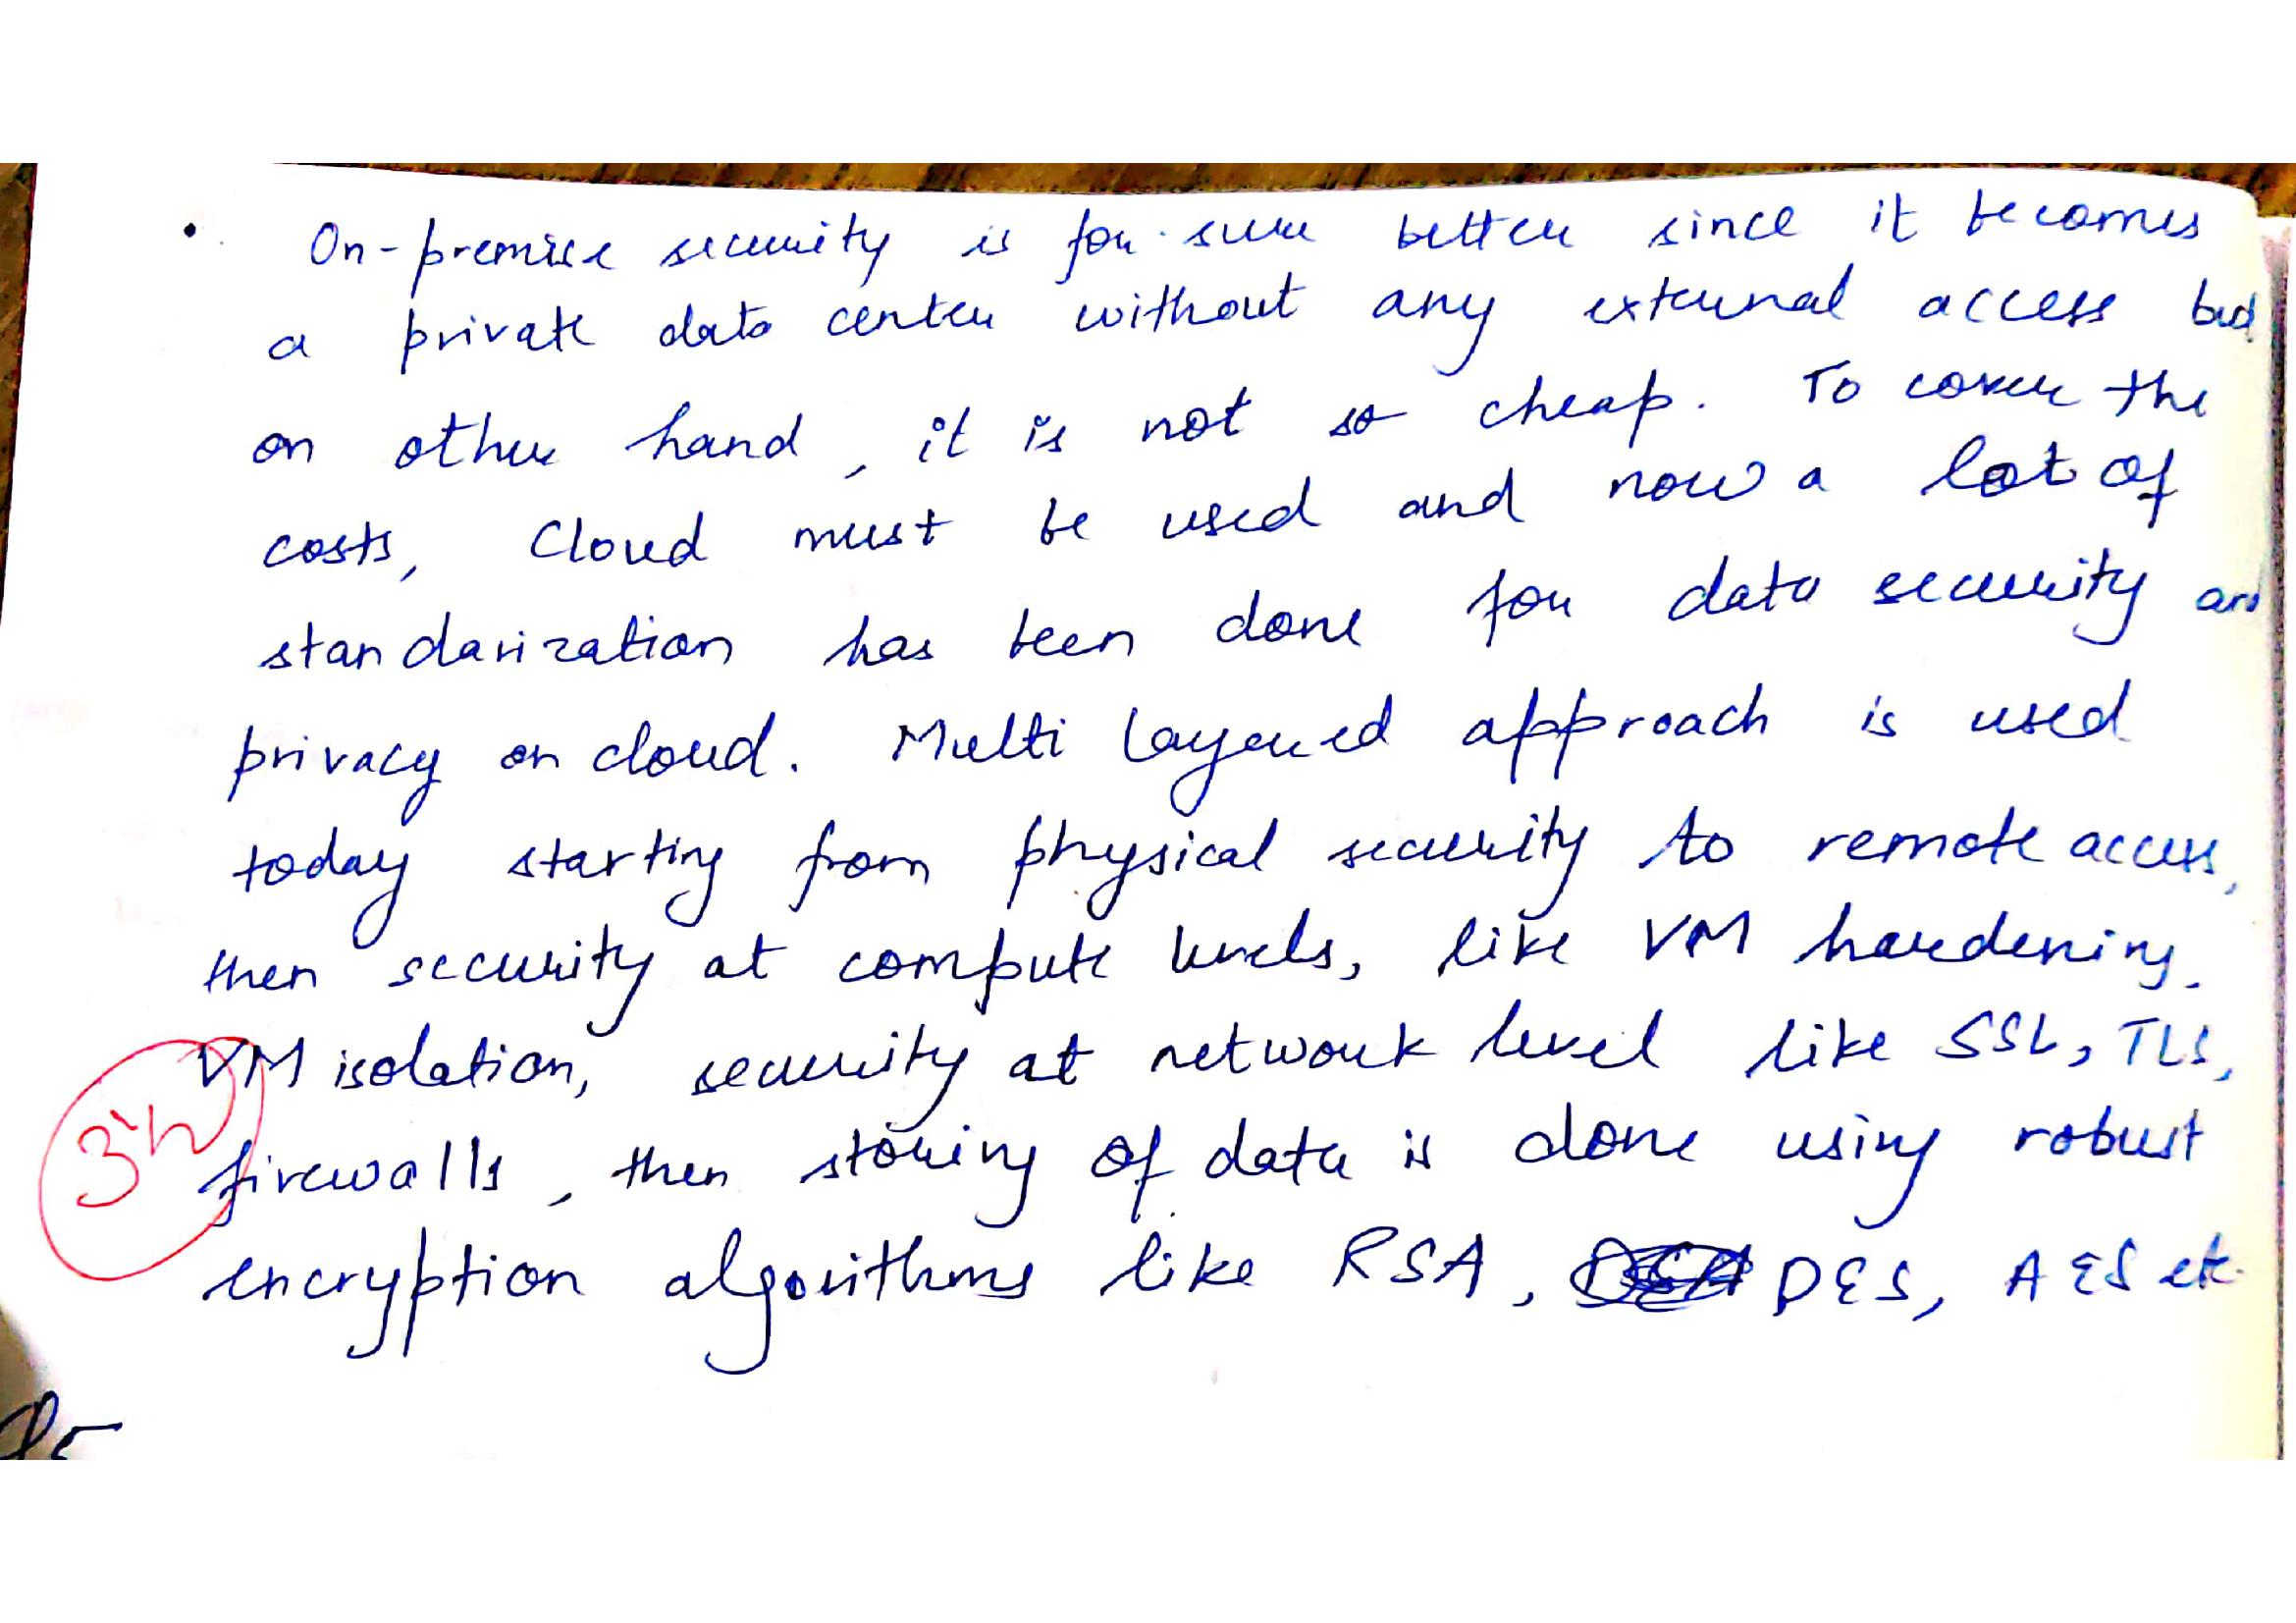 • On-premise security is for sure better since it becomes
a private data center without any external access but
on other hand, it is not so cheap. To cover the
costs, Cloud must be used and now a lot of
standarization has been done for data security and
privacy on cloud. Multi layered approach is used
today starting from physical security to remote access,
then security at compute levels, like VM hardening,
VM isolation, security at network level like SSL, TLS,
firewalls, then storing of data is done using robust
encryption algorithms like RSA, DES, AES etc.